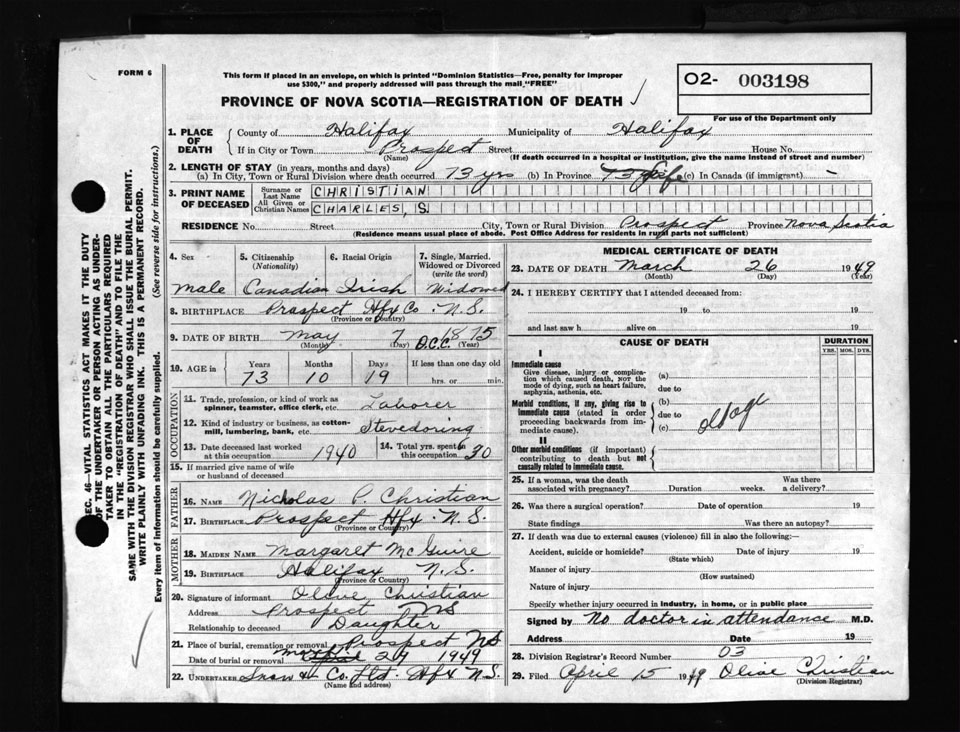 FORM 6
This form if placed in an envelope, on which is printed "Dominion Statistics—Free, penalty for improper
use $300," and properly addressed will pass through the mail "FREE"
PROVINCE OF NOVA SCOTIA—REGISTRATION OF DEATH ✓
O2- 003198
For use of the Department only
SEC. 46—VITAL STATISTICS ACT MAKES IT THE DUTY
OF THE UNDERTAKER OR PERSON ACTING AS UNDER-
TAKER TO OBTAIN ALL THE PARTICULARS REQUIRED
IN THE "REGISTRATION OF DEATH" AND TO FILE THE
SAME WITH THE DIVISION REGISTRAR WHO SHALL ISSUE THE BURIAL PERMIT.
WRITE PLAINLY WITH UNFADING INK. THIS IS A PERMANENT RECORD.
Every item of information should be carefully supplied. (See reverse side for instructions.)
1. PLACE OF DEATH { County of Halifax Municipality of Halifax
If in City or Town Prospect Street House No.
(Name) (If death occurred in a hospital or institution, give the name instead of street and number)
2. LENGTH OF STAY (in years, months and days)
(a) In City, Town or Rural Division where death occurred 73 yrs (b) In Province 73 Life (c) In Canada (if immigrant) -
3. PRINT NAME OF DECEASED { Surname or Last Name CHRISTIAN
All Given or Christian Names CHARLES, S.
RESIDENCE No. Street City, Town or Rural Division Prospect Province Nova Scotia
(Residence means usual place of abode. Post Office Address for residents in rural parts not sufficient)
4. Sex 5. Citizenship (Nationality) 6. Racial Origin 7. Single, Married, Widowed or Divorced (write the word)
male Canadian Irish Widowed
8. BIRTHPLACE Prospect Hfx Co. N.S.
(Province or Country)
9. DATE OF BIRTH May 7 O.C.C. 1875
(Month) (Day) (Year)
10. AGE IN { Years Months Days If less than one day old
73 10 19 hrs. or min.
OCCUPATION
11. Trade, profession, or kind of work as spinner, teamster, office clerk, etc. Laborer
12. Kind of industry or business, as cotton-mill, lumbering, bank, etc. Stevedoring
13. Date deceased last worked at this occupation 1940 14. Total yrs. spent in this occupation 30
15. If married give name of wife or husband of deceased
FATHER
16. NAME Nicholas P. Christian
17. BIRTHPLACE Prospect Hfx. N.S.
(Province or Country)
MOTHER
18. MAIDEN NAME Margaret McGuire
19. BIRTHPLACE Halifax N.S.
(Province or Country)
20. Signature of informant Olive Christian
Address Prospect NS
Relationship to deceased Daughter
21. Place of burial, cremation or removal Prospect NS
Date of burial or removal March 29 1949
22. UNDERTAKER Snow & Co. Ltd. Hfx N.S.
(Name and address)
MEDICAL CERTIFICATE OF DEATH
23. DATE OF DEATH March 26 1949
(Month) (Day) (Year)
24. I HEREBY CERTIFY that I attended deceased from:
19 to 19
and last saw h alive on 19
CAUSE OF DEATH DURATION
YRS. MOS. DYS.
I
Immediate cause (a)
Give disease, injury or complication which caused death, NOT the mode of dying, such as heart failure, asphyxia, asthenia, etc. due to
Morbid conditions, if any, giving rise to immediate cause (stated in order proceeding backwards from immediate cause). (b)
due to
(c) old age
II
Other morbid conditions (if important) contributing to death but not causally related to immediate cause.
25. If a woman, was the death associated with pregnancy? Duration weeks. Was there a delivery?
26. Was there a surgical operation? Date of operation 19
State findings Was there an autopsy?
27. If death was due to external causes (violence) fill in also the following:—
Accident, suicide or homicide? Date of injury 19
(State which)
Manner of injury
(How sustained)
Nature of injury
Specify whether injury occurred in industry, in home, or in public place
Signed by No doctor in attendance M.D.
Address Date 19
28. Division Registrar's Record Number 03
29. Filed April 15 1949 Olive Christian
(Division Registrar)